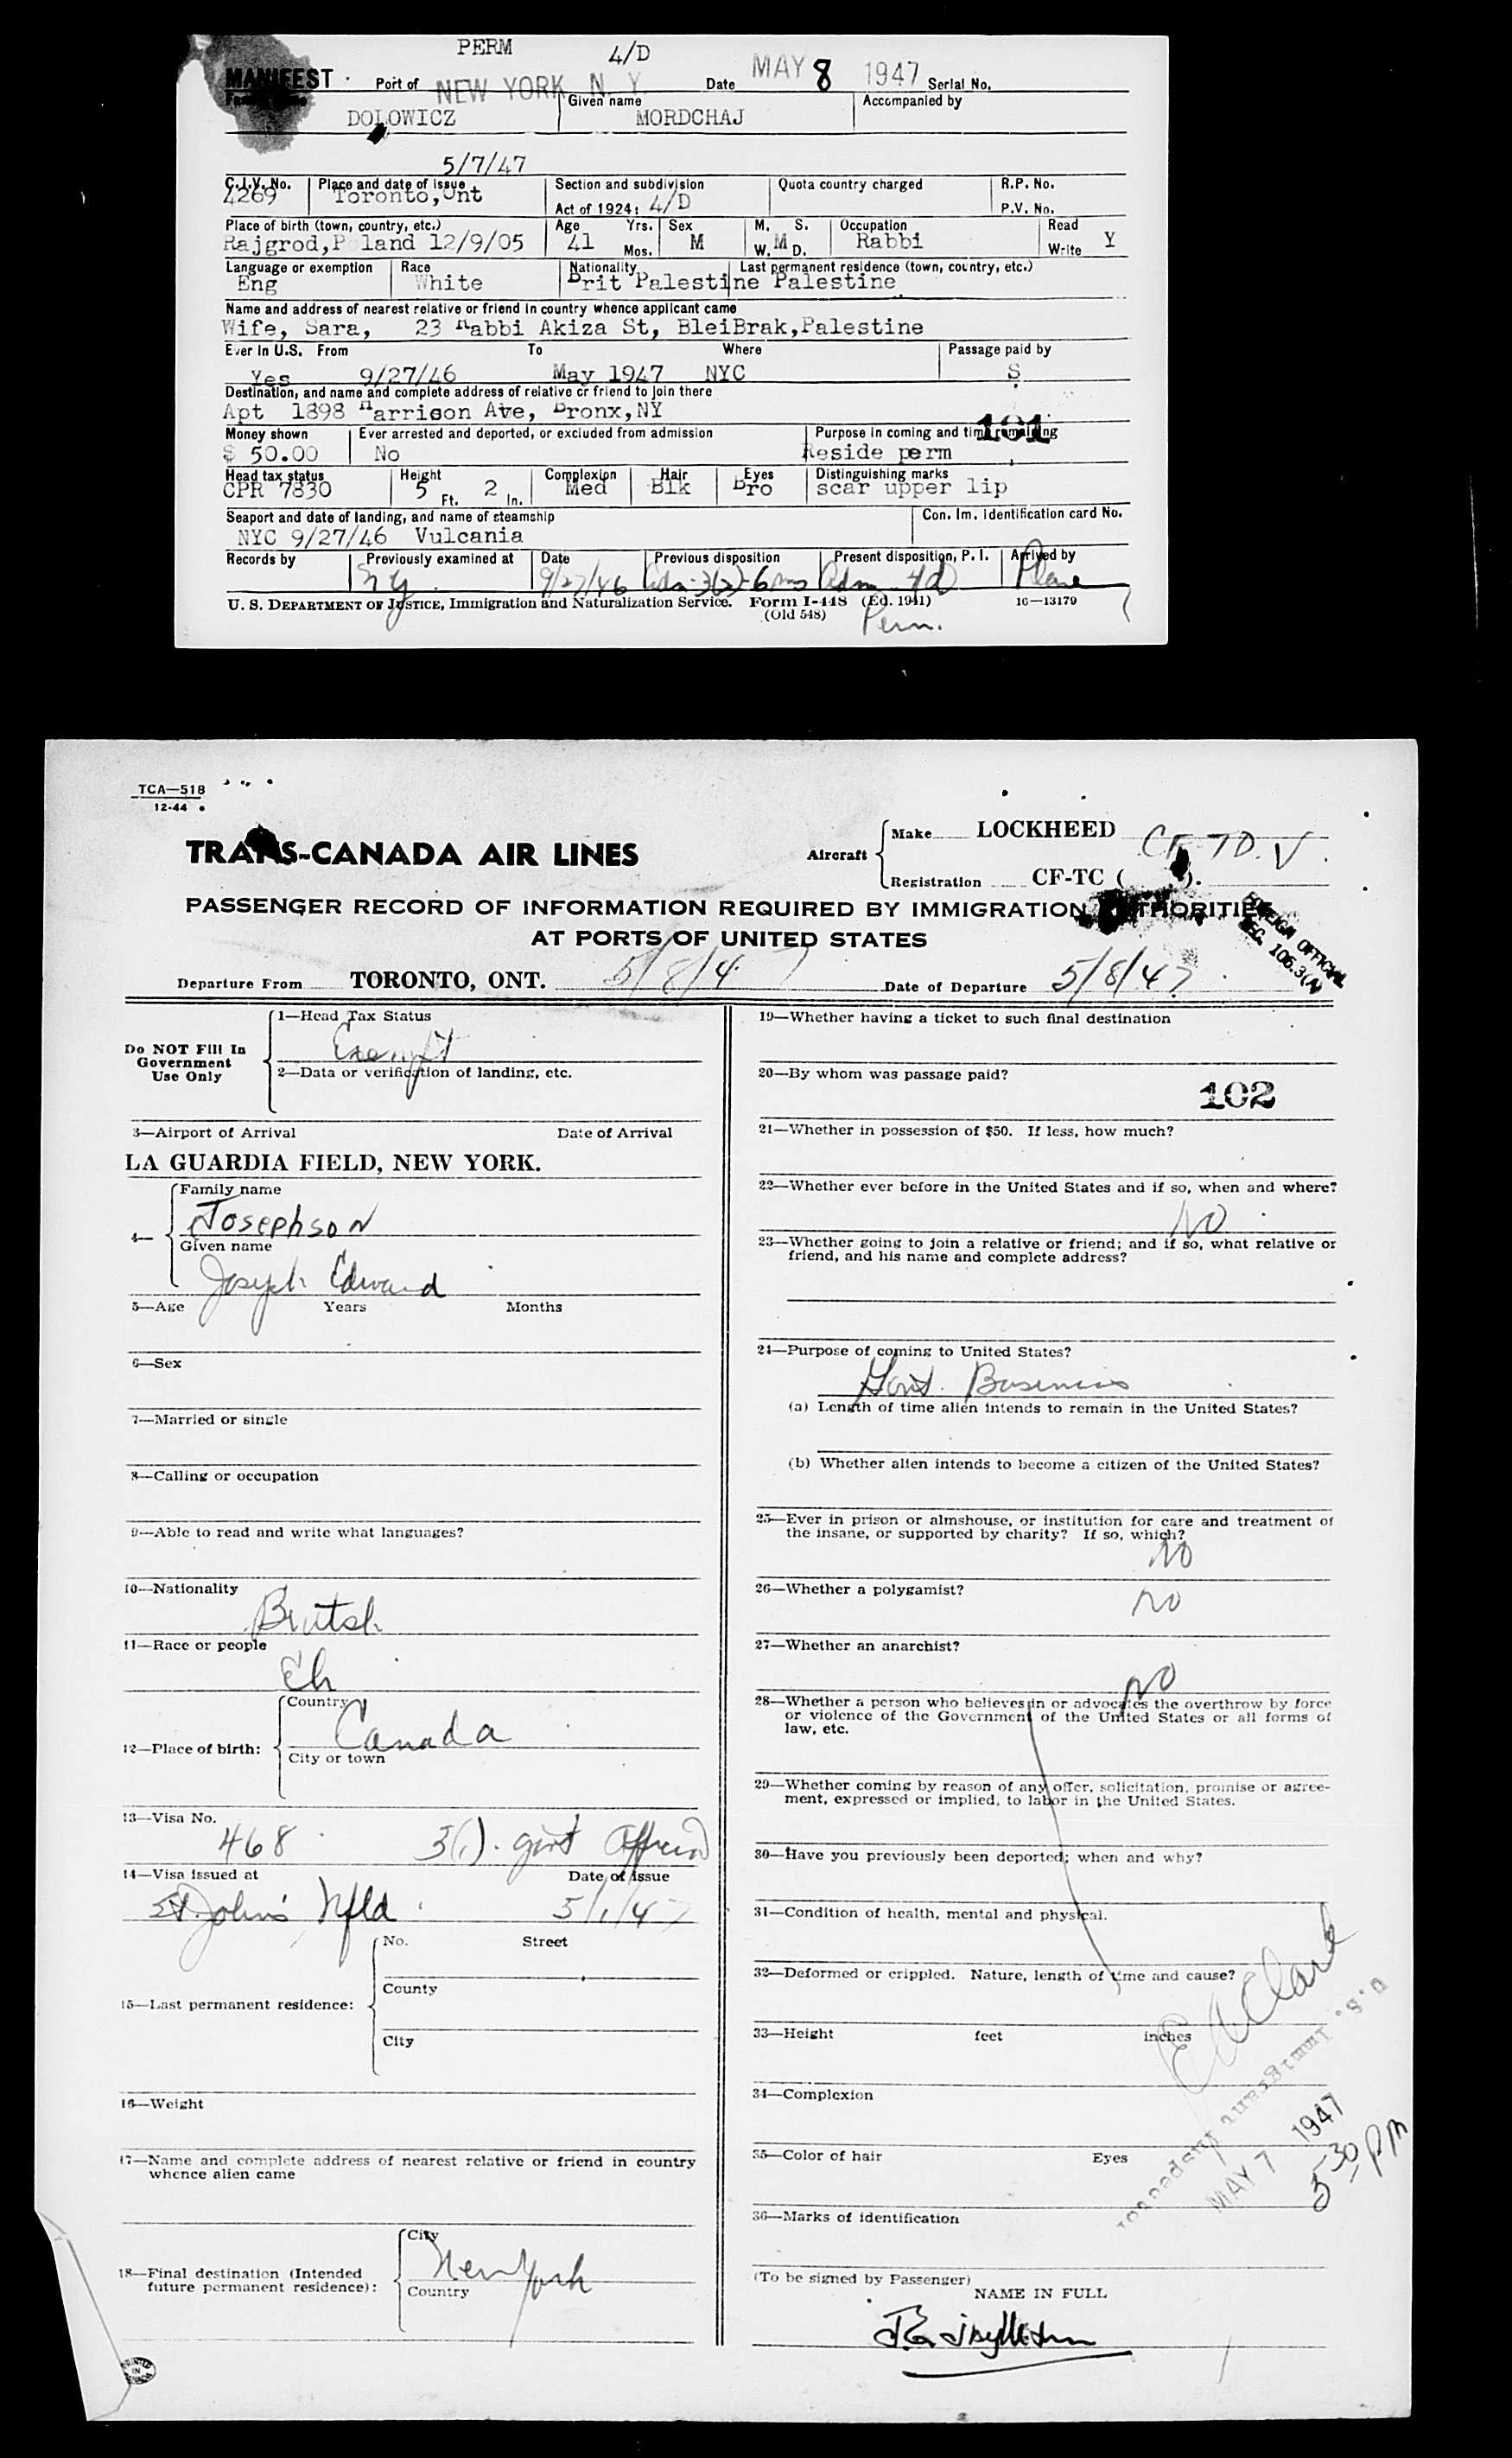 PERM 4/D
MANIFEST Port of NEW YORK, N. Y. Date MAY 8 1947 Serial No.
Family name Given name Accompanied by
DOLOWICZ MORDCHAJ
5/7/47
C.I.V. No. Place and date of issue Section and subdivision Quota country charged R.P. No.
4269 Toronto, Ont Act of 1924: 4/D P.V. No.
Place of birth (town, country, etc.) Age Yrs. Sex M. S. Occupation Read
Rajgrod, Poland 12/9/05 41 Mos. M W. M D. Rabbi Write Y
Language or exemption Race Nationality Last permanent residence (town, country, etc.)
Eng White Brit Palestine Palestine
Name and address of nearest relative or friend in country whence applicant came
Wife, Sara, 23 Rabbi Akiza St, BleiBrak, Palestine
Ever in U.S. From To Where Passage paid by
Yes 9/27/46 May 1947 NYC S
Destination, and name and complete address of relative or friend to join there
Apt 1898 Harrison Ave, Bronx, NY
101
Money shown Ever arrested and deported, or excluded from admission Purpose in coming and time remaining
$ 50.00 No Reside perm
Head tax status Height Complexion Hair Eyes Distinguishing marks
CPR 7830 5 Ft. 2 In. Med Blk Bro scar upper lip
Seaport and date of landing, and name of steamship Con. Im. identification card No.
NYC 9/27/46 Vulcania
Records by Previously examined at Date Previous disposition Present disposition, P. I. Arrived by
NY 9/27/46 Adm 3(2)-6 mos Adm 4d Plane
U. S. DEPARTMENT OF JUSTICE, Immigration and Naturalization Service. Form I-448 (Ed. 1941) 16—13179
(Old 548) Perm.
TCA—518
12-44
TRANS-CANADA AIR LINES
Aircraft Make LOCKHEED CF TD. V
Registration CF-TC ( ).
PASSENGER RECORD OF INFORMATION REQUIRED BY IMMIGRATION AUTHORITIES
AT PORTS OF UNITED STATES
FOREIGN OFFICIAL
SEC. 106.3(A)
Departure From TORONTO, ONT. 5/8/47 Date of Departure 5/8/47
Do NOT Fill In Government Use Only
1—Head Tax Status
Exempt
2—Data or verification of landing, etc.
3—Airport of Arrival Date of Arrival
LA GUARDIA FIELD, NEW YORK.
4— Family name
Josephson
Given name
Joseph Edward
5—Age Years Months
6—Sex
7—Married or single
8—Calling or occupation
9—Able to read and write what languages?
10—Nationality
British
11—Race or people
Eh
12—Place of birth: Country
Canada
City or town
13—Visa No.
468 3(1). govt Official
14—Visa issued at Date of issue
St. John's Nfld. 5/1/47
15—Last permanent residence: No. Street
County
City
16—Weight
17—Name and complete address of nearest relative or friend in country
whence alien came
18—Final destination (Intended
future permanent residence): City
New York
Country
19—Whether having a ticket to such final destination
20—By whom was passage paid?
102
21—Whether in possession of $50. If less, how much?
22—Whether ever before in the United States and if so, when and where?
NO
23—Whether going to join a relative or friend; and if so, what relative or
friend, and his name and complete address?
24—Purpose of coming to United States?
Govt. Business
(a) Length of time alien intends to remain in the United States?
(b) Whether alien intends to become a citizen of the United States?
25—Ever in prison or almshouse, or institution for care and treatment of
the insane, or supported by charity? If so, which?
NO
26—Whether a polygamist?
NO
27—Whether an anarchist?
NO
28—Whether a person who believes in or advocates the overthrow by force
or violence of the Government of the United States or all forms of
law, etc.
29—Whether coming by reason of any offer, solicitation, promise or agree-
ment, expressed or implied, to labor in the United States.
30—Have you previously been deported; when and why?
31—Condition of health, mental and physical.
32—Deformed or crippled. Nature, length of time and cause?
33—Height feet inches
34—Complexion
35—Color of hair Eyes
36—Marks of identification
E A Clark
U.S. Immigrant Inspector
MAY 7 1947
5:30 PM
(To be signed by Passenger)
NAME IN FULL